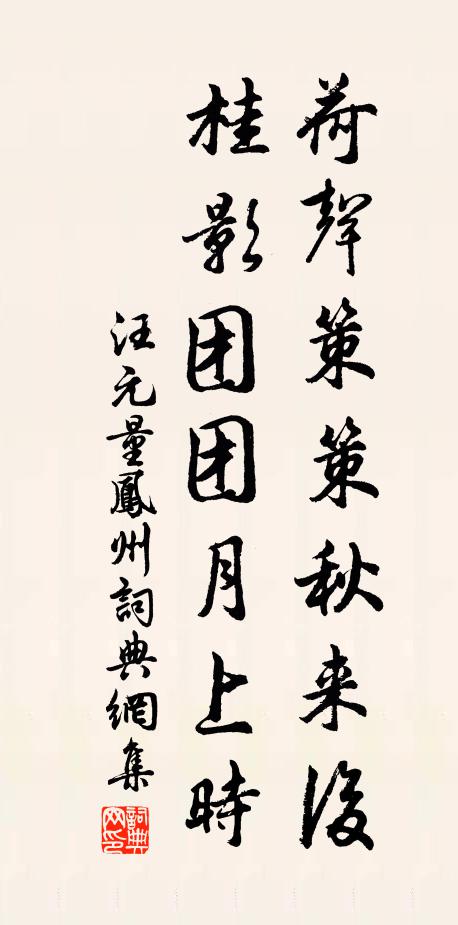 荷聲策策秋来後
桂影团团月上時
汪元量鳳州詞典網集
詞典网印